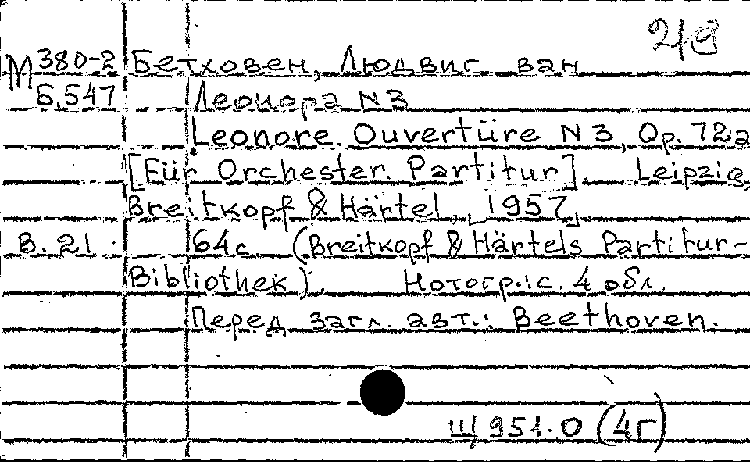 218
М 380-2 Бетховен, Людвиг ван
Б.547 Леонора N 3
Leonore. Ouvertüre N 3, Op. 72a
[Für Orchester. Partitur]. Leipzig,
Breitkopf & Härtel, [1957].
В. 21. 64 с. (Breitkopf & Härtels Partitur-
Bibliothek). Нотогр.: с. 4 обл.
Перед загл. авт.: Beethoven.
Щ 951.0 (4Г)